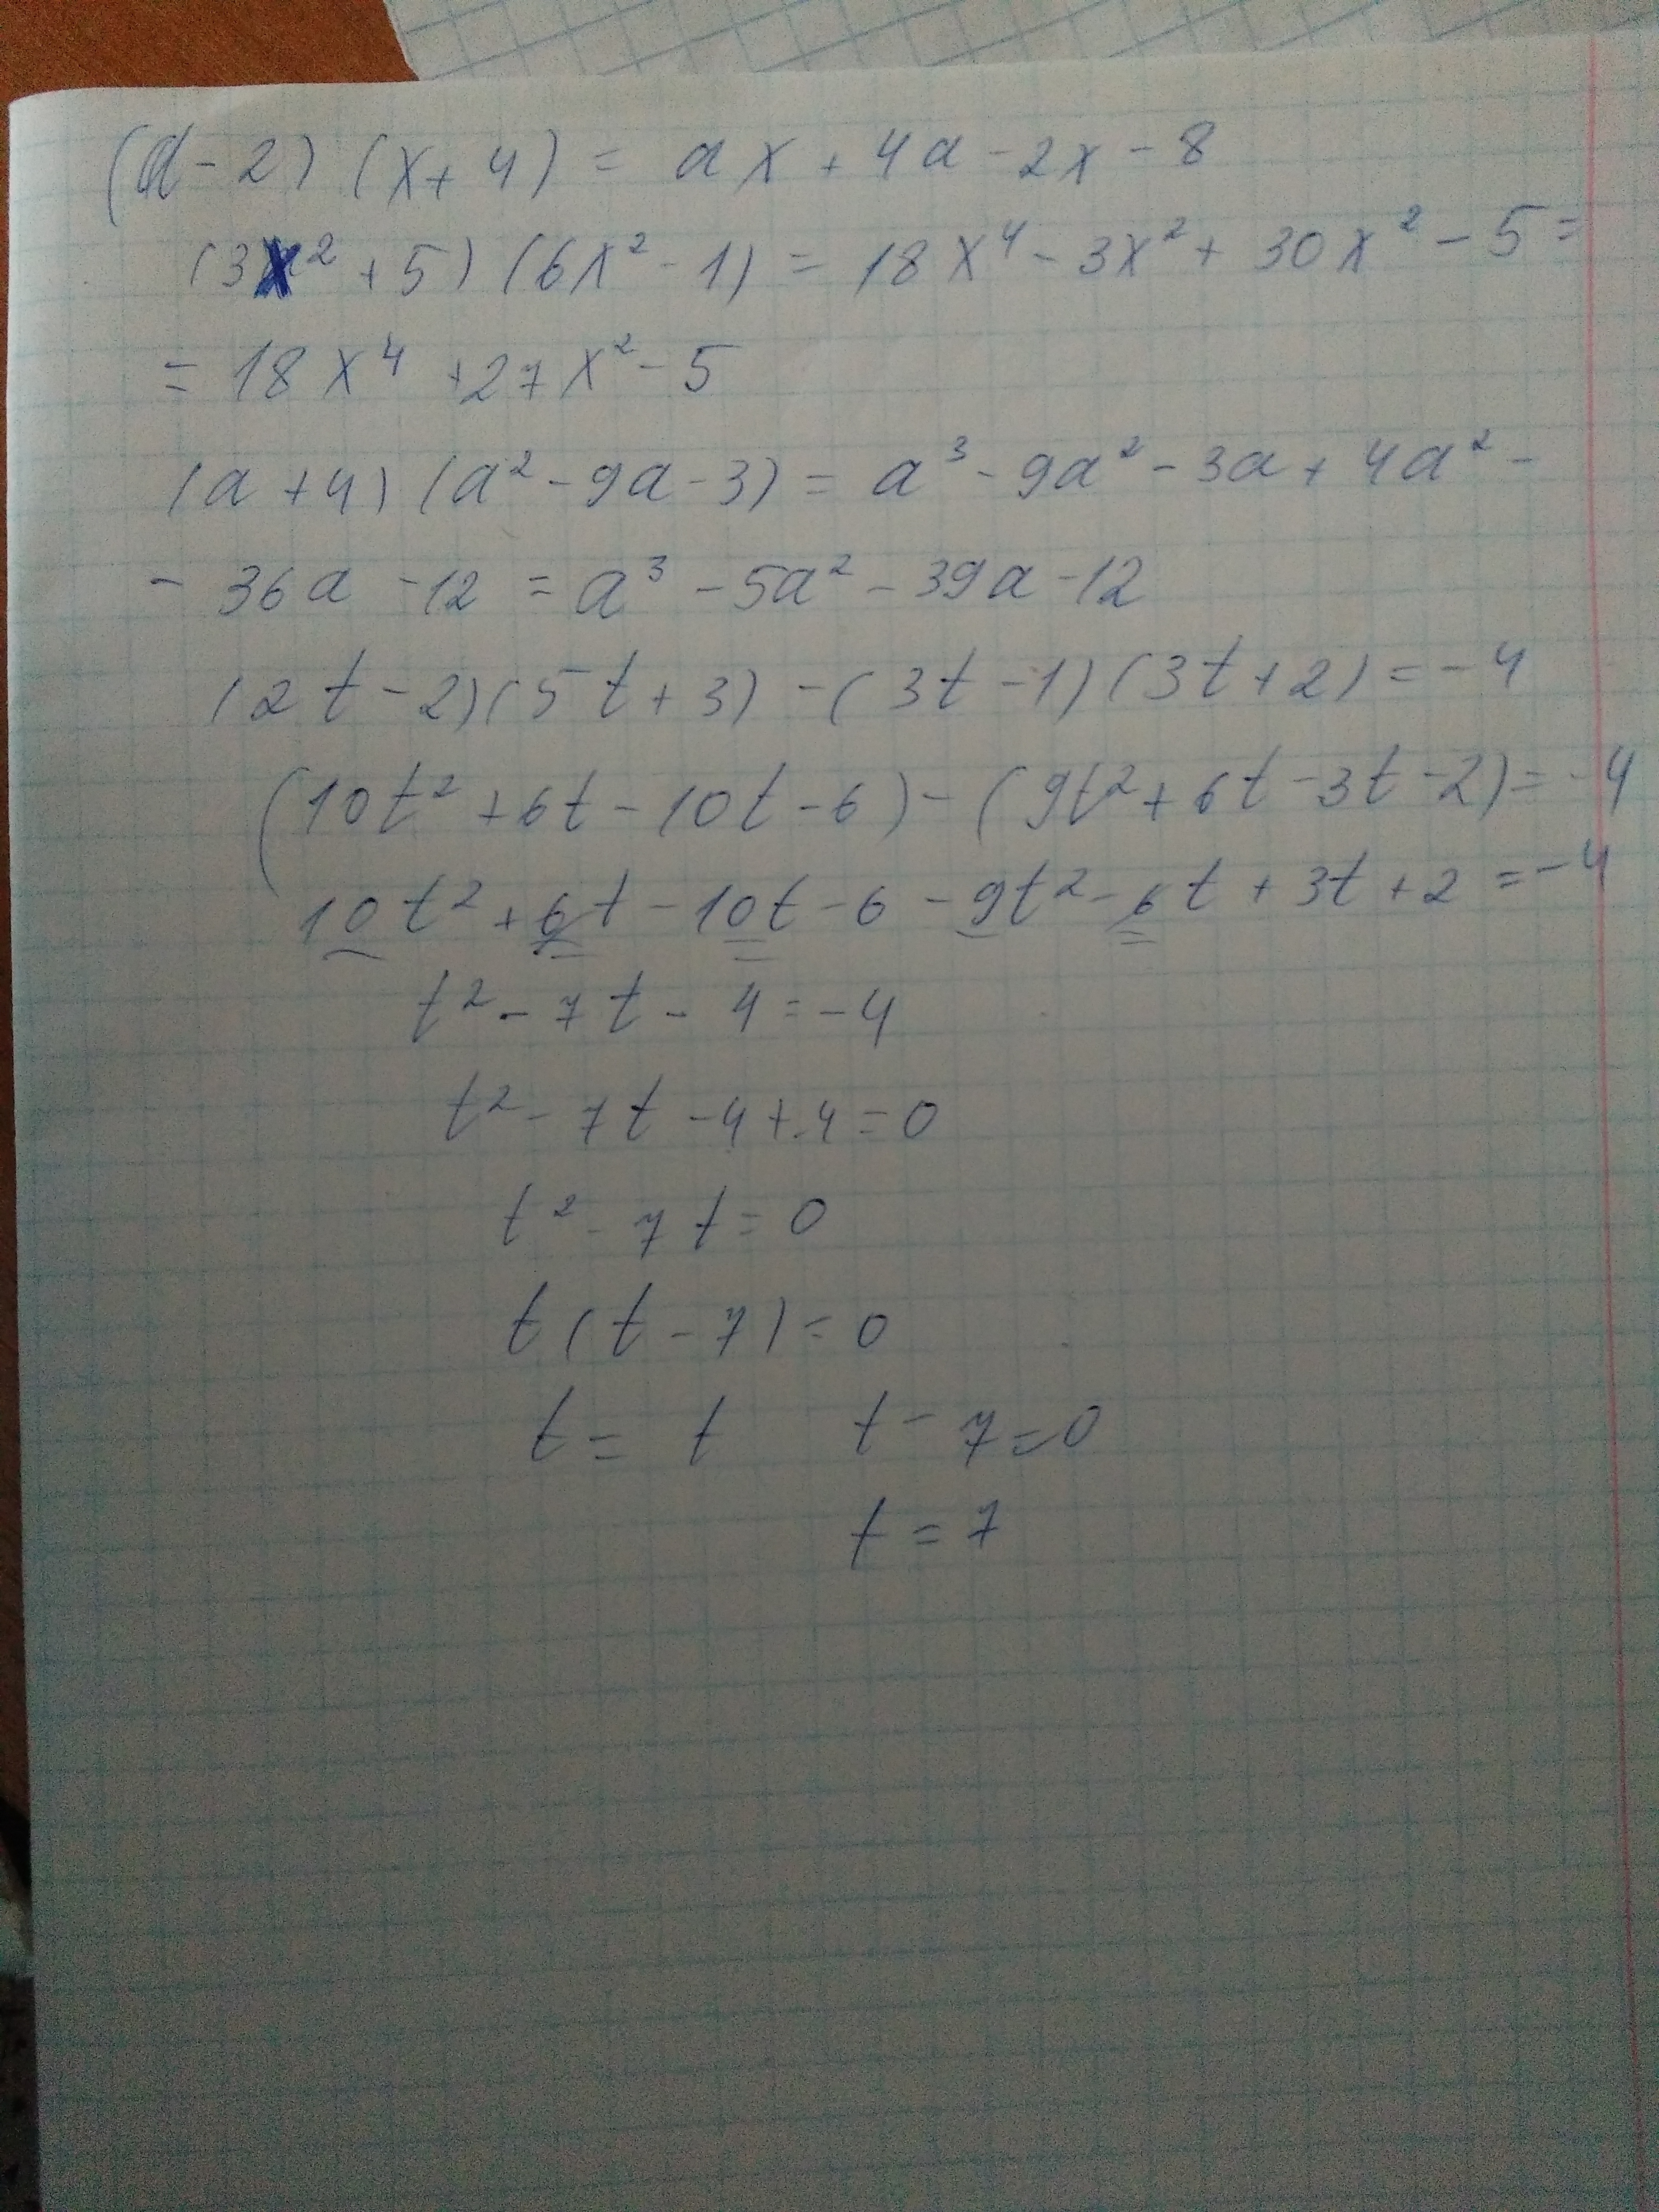 (a-2) (x+4) = ax + 4a - 2x - 8
(3x² + 5) (6x² - 1) = 18x⁴ - 3x² + 30x² - 5 =
= 18x⁴ + 27x² - 5
(a+4) (a² - 9a - 3) = a³ - 9a² - 3a + 4a² -
- 36a - 12 = a³ - 5a² - 39a - 12
(2t - 2)(5t + 3) - (3t - 1)(3t + 2) = -4
(10t² + 6t - 10t - 6) - (9t² + 6t - 3t - 2) = -4
10t² + 6t - 10t - 6 - 9t² - 6t + 3t + 2 = -4
t² - 7t - 4 = -4
t² - 7t - 4 + 4 = 0
t² - 7t = 0
t(t - 7) = 0
t = t t - 7 = 0
t = 7